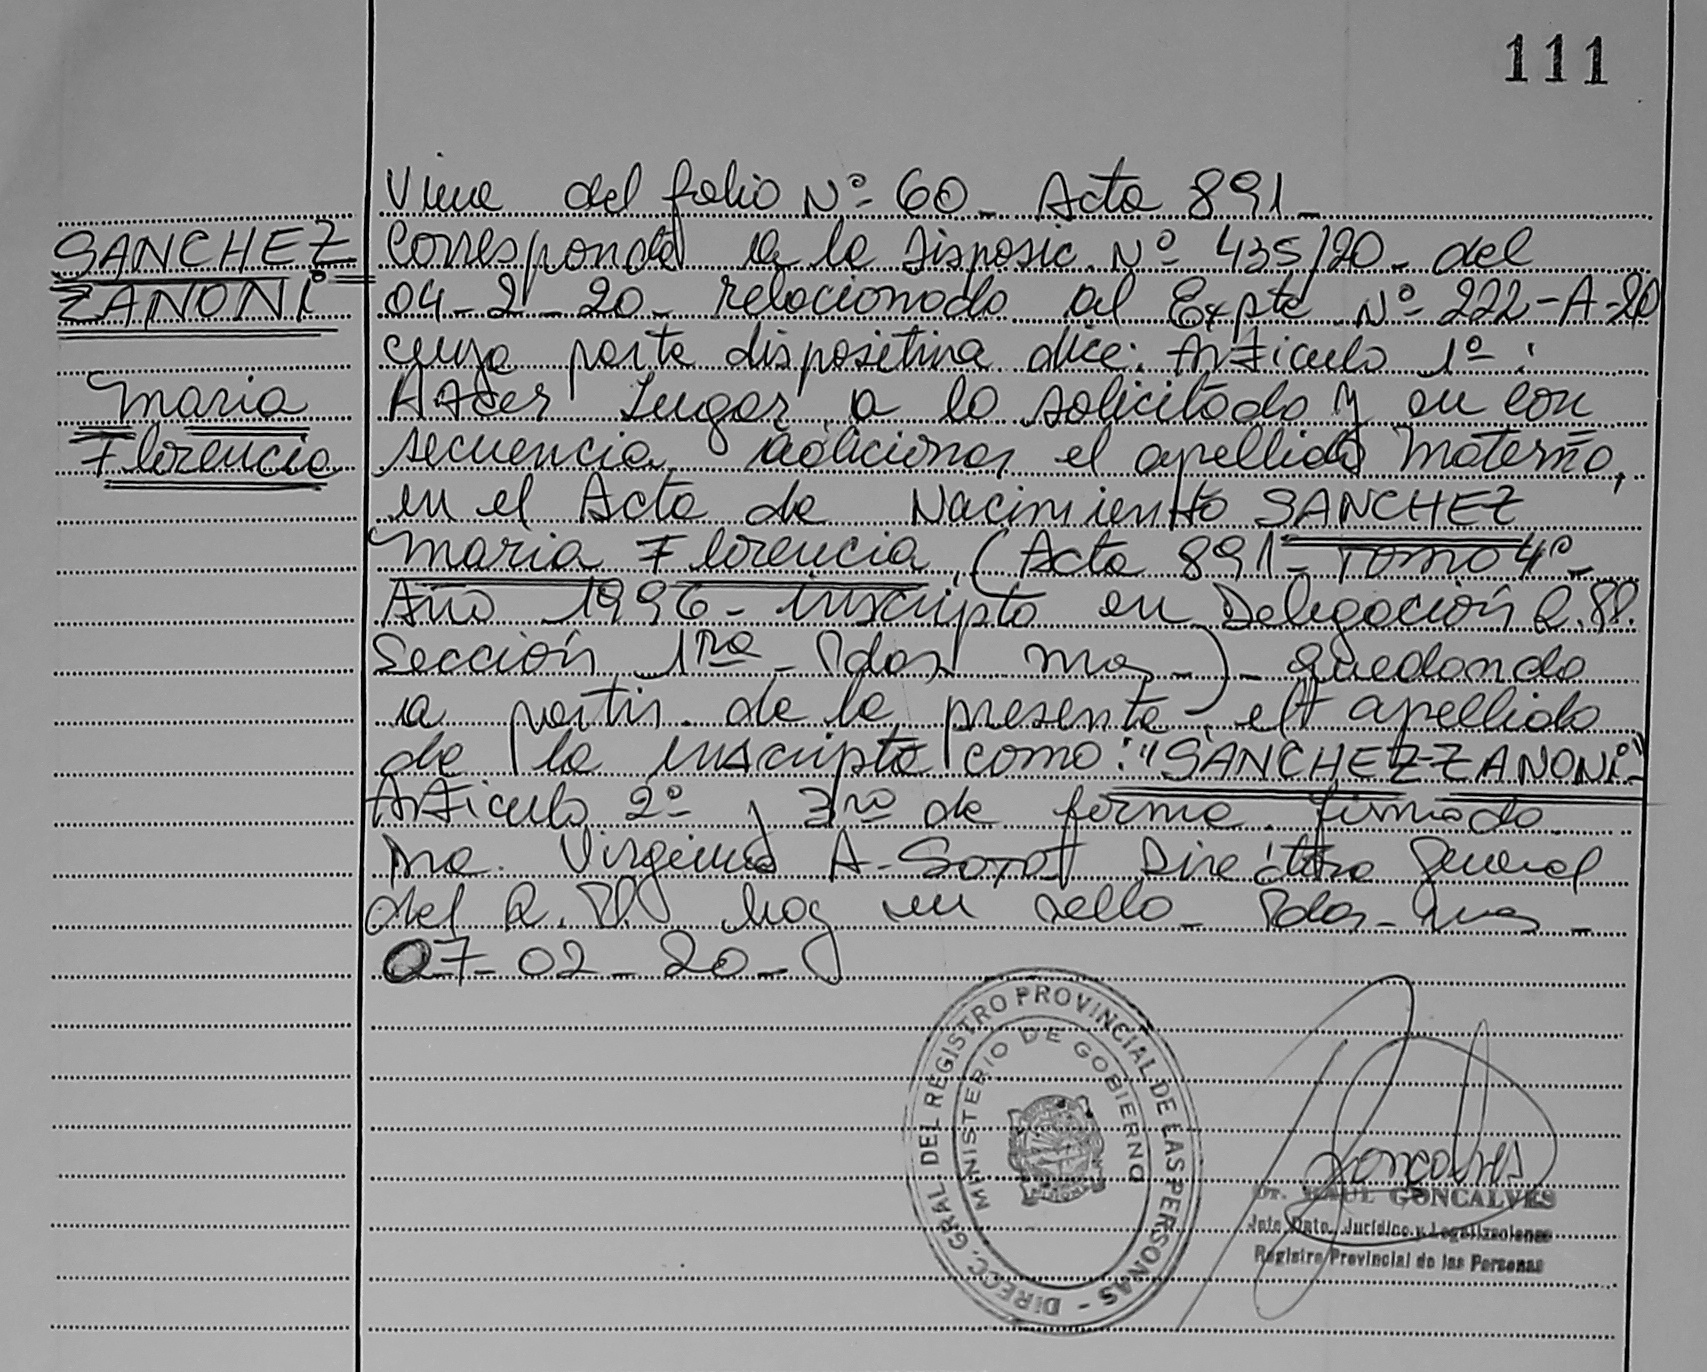 111
Viene del folio Nº 60 - Acta 891 -
SANCHEZ
ZANONI
Maria
Florencia
Corresponde a la Disposic. Nº 435/20 - del
04-2-20 - relacionado al Expte Nº 222-A-20
cuya parte dispositiva dice: Articulo 1º:
HAcer Lugar a lo solicitado y en con
secuencia adicionar el apellido Materno,
en el Acta de Nacimiento SANCHEZ
Maria Florencia (Acta 891 - Tomo 4º -
Año 1996 - inscripta en Delegación R.PP.
Sección 1ra - Pdas Mnes -) - quedando
a partir de la presente el apellido
de la inscripta como: "SANCHEZ ZANONI"
Articulo 2º y 3ro de forma firmado
Dra. Virginia A. Soto Directora General
del R.PP hay un sello - Pdas - Mnes -
07-02-20 -
DIRECC. GRAL. DEL REGISTRO PROVINCIAL DE LAS PERSONAS -
MINISTERIO DE GOBIERNO
Goncalves
Dr. RAUL GONCALVES
Jefe Dpto. Jurídico y Legalizaciones
Registro Provincial de las Personas